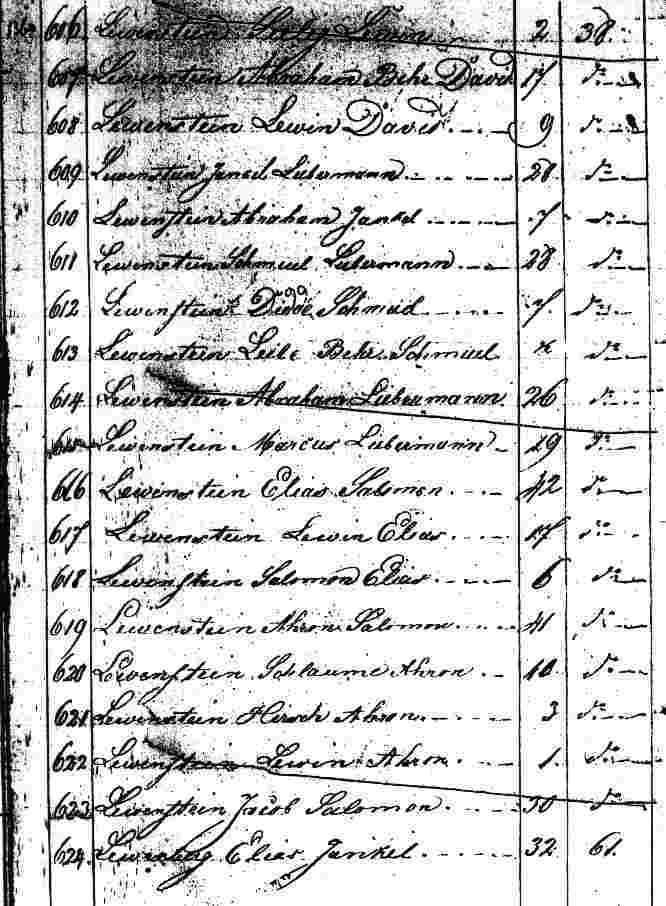 606 Lewenstein 2 38.
607 Lewenstein Abraham Behr David 17 do
608 Lewenstein Lewin David 9 do
609 Lewenstein Jankel Liebermann 28 do
610 Lewenstein Abraham Jankel 7 do
611 Lewenstein Schmuel Liebermann 28 do
612 Lewenstein Schmuel 7. do
613 Lewenstein Leibe Behr Schmuel do
614 Lewenstein Abraham Liebermann 26 do
Lewenstein Marcus Liebermann 29 do
616 Lewenstein Elias Salomon 42 do
617 Lewenstein Lewin Elias 17 do
618 Lewenstein Salomon Elias 6 do
619 Lewenstein Ahron Salomon 41 do
620 Lewenstein Schlaume Ahron 10 do
621 Lewenstein Hirsch Ahron 3 do
622 Lewenstein Lewin Ahron 1. do
623 Lewenstein Jacob Salomon 30 do
624. Elias Jankel 32 61.